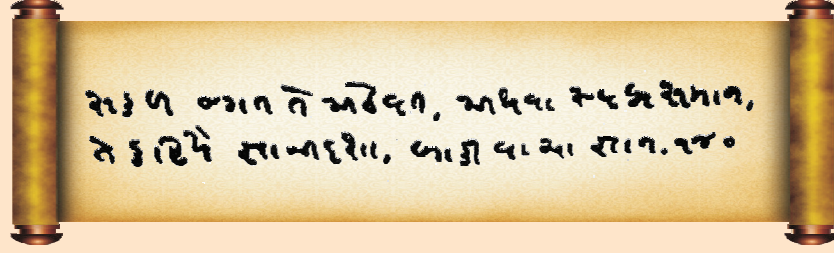 સકળ જગત તે અેઠવત, અથવા સ્વપ્ન સમાન,
તે કહિયે જ્ઞાનદશા, બાકી વાચા જ્ઞાન. ૧૪૦